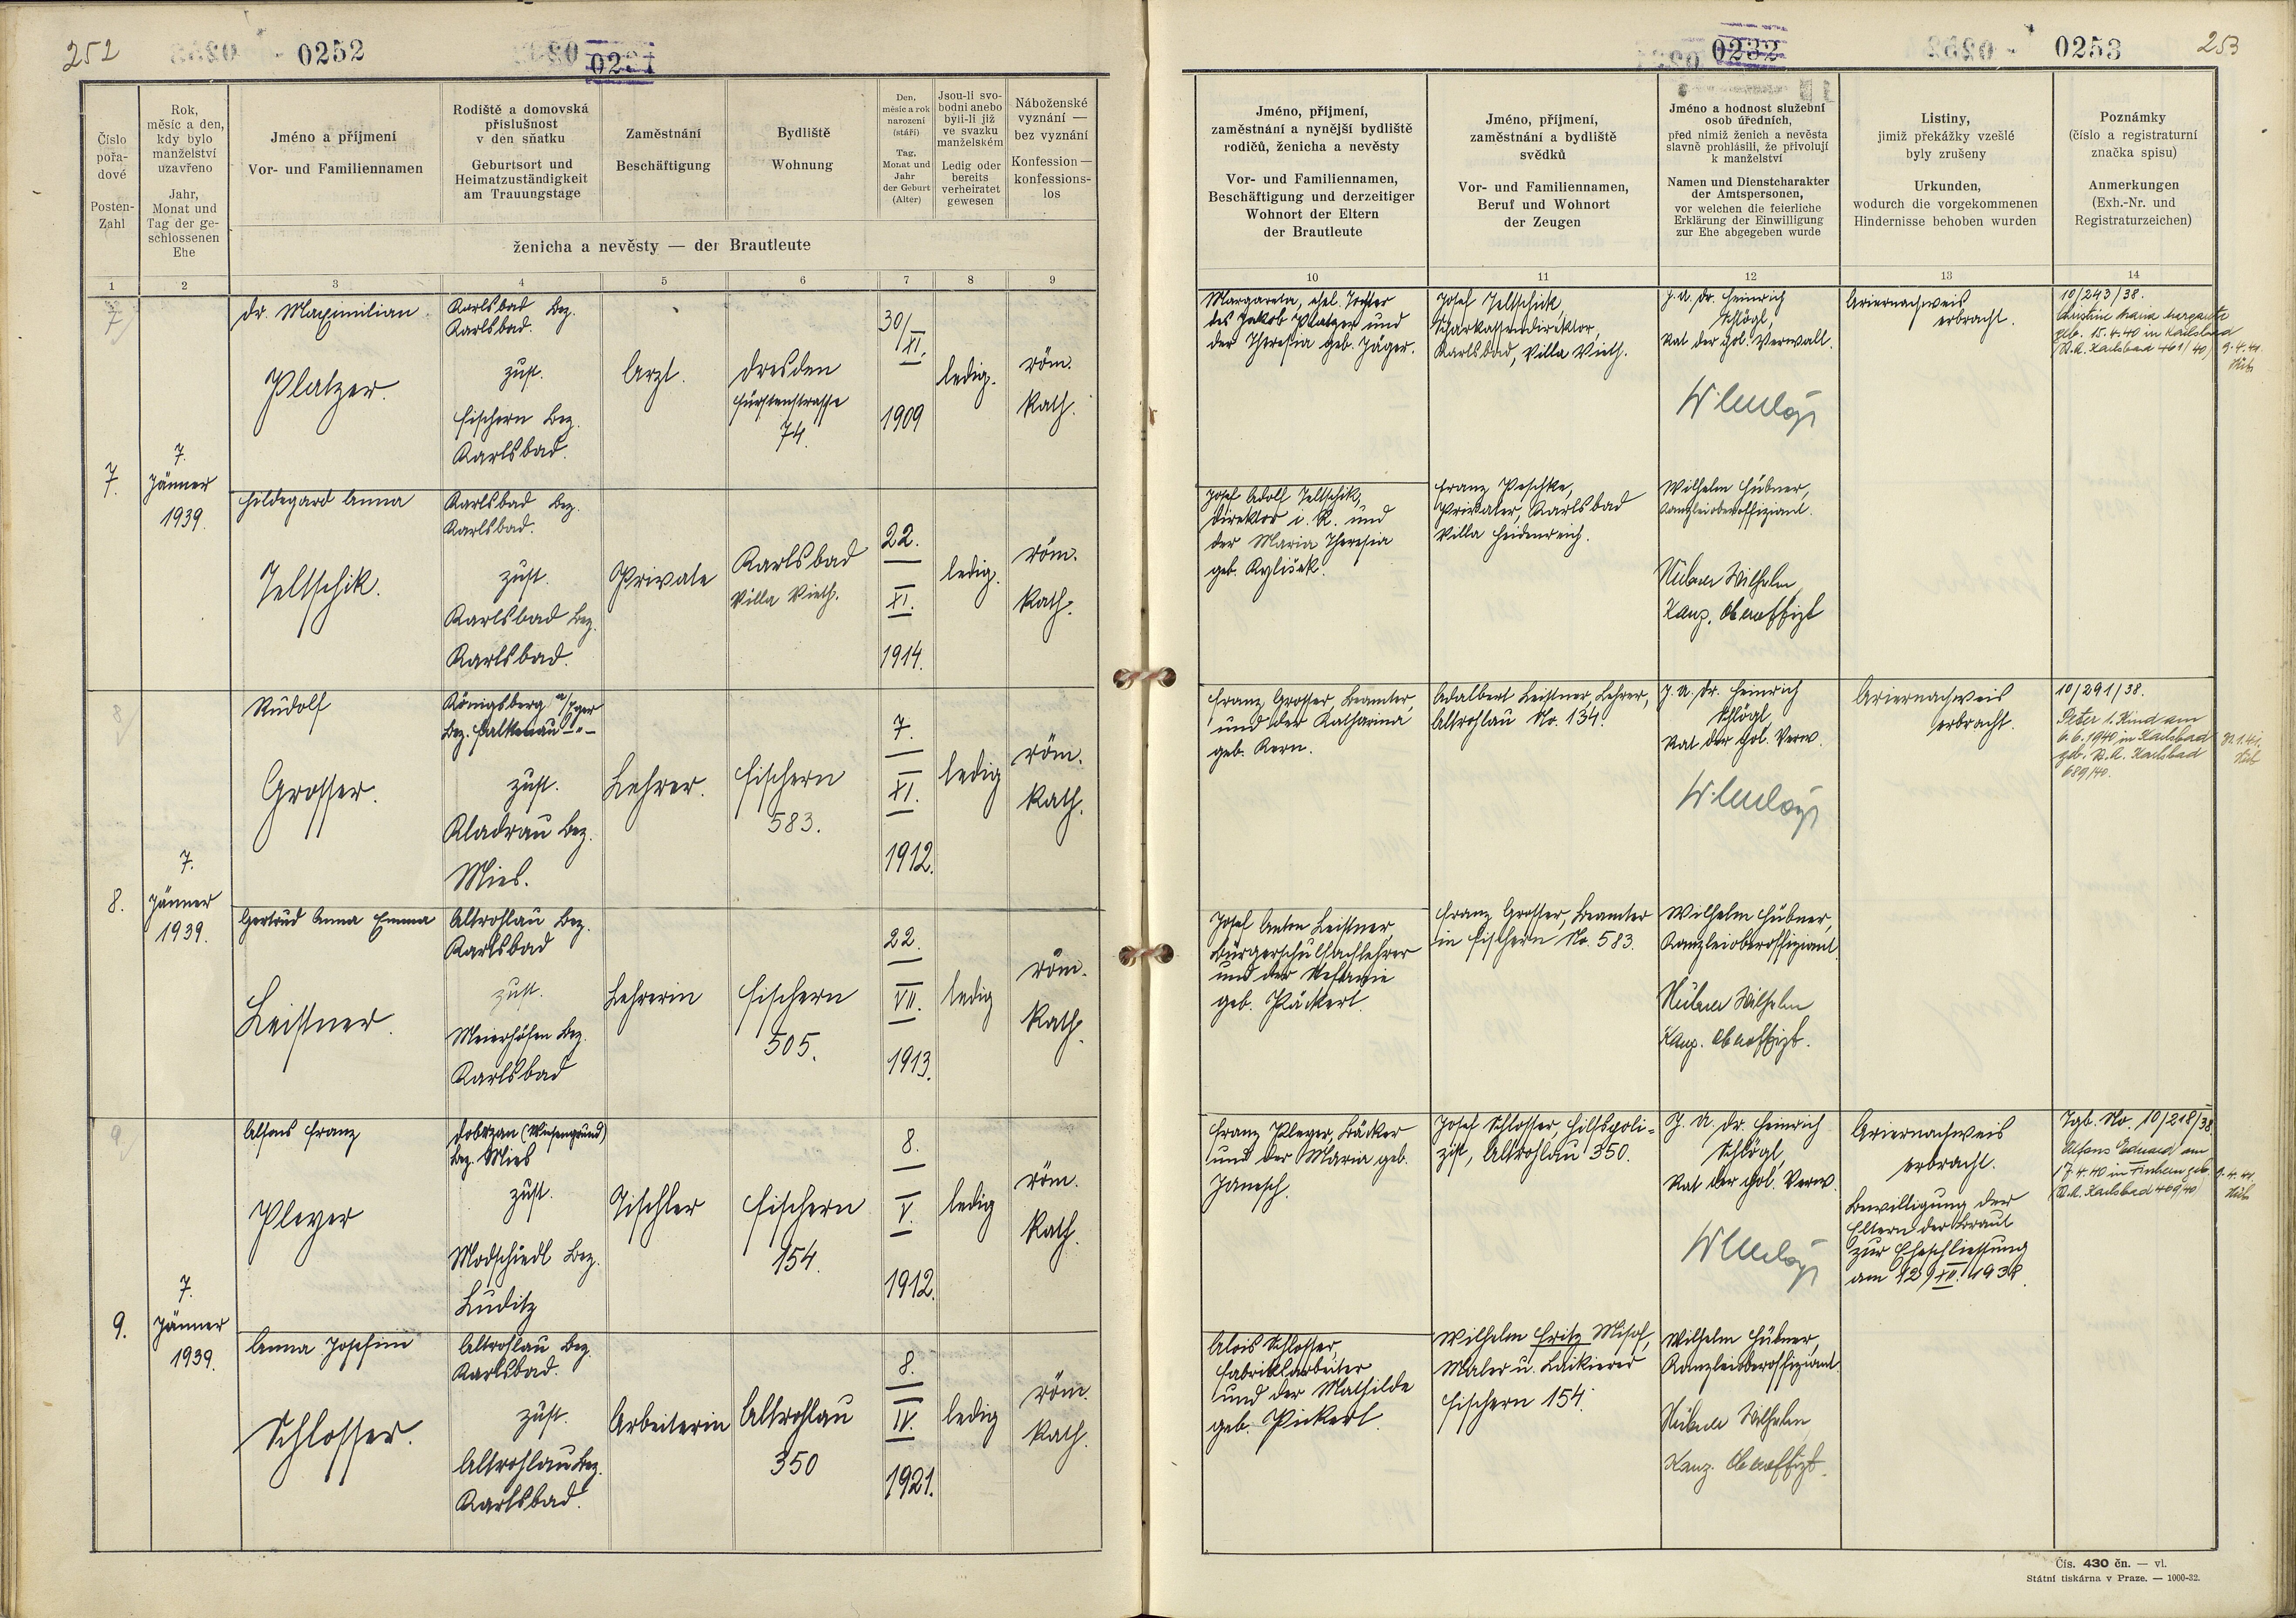 252
0252
0231
0232
0253
253
Číslo pořadové
Posten-Zahl
Rok, měsíc a den, kdy bylo manželství uzavřeno
Jahr, Monat und Tag der geschlossenen Ehe
Jméno a příjmení
Vor- und Familiennamen
Rodiště a domovská příslušnost v den sňatku
Geburtsort und Heimatzuständigkeit am Trauungstage
Zaměstnání
Beschäftigung
Bydliště
Wohnung
Den, měsíc a rok narození (stáří)
Tag, Monat und Jahr der Geburt (Alter)
Jsou-li svobodni anebo byli-li již ve svazku manželském
Ledig oder bereits verheiratet gewesen
Náboženské vyznání — bez vyznání
Konfession — konfessionslos
ženicha a nevěsty — der Brautleute
Jméno, příjmení, zaměstnání a nynější bydliště rodičů, ženicha a nevěsty
Vor- und Familiennamen, Beschäftigung und derzeitiger Wohnort der Eltern der Brautleute
Jméno, příjmení, zaměstnání a bydliště svědků
Vor- und Familiennamen, Beruf und Wohnort der Zeugen
Jméno a hodnost služební osob úředních,
před nimiž ženich a nevěsta slavně prohlásili, že přivolují k manželství
Namen und Dienstcharakter der Amtspersonen,
vor welchen die feierliche Erklärung der Einwilligung zur Ehe abgegeben wurde
Listiny,
jimiž překážky vzešlé byly zrušeny
Urkunden,
wodurch die vorgekommenen Hindernisse behoben wurden
Poznámky
(číslo a registraturní značka spisu)
Anmerkungen
(Exh.-Nr. und Registraturzeichen)
1 2 3 4 5 6 7 8 9 10 11 12 13 14
7.
7. Jänner 1939.
Dr. Maximilian
Platzer.
Karlsbad Bez.
Karlsbad.
zust.
Fischern Bez.
Karlsbad.
Arzt.
Dresden
Fürstenstrasse
74.
30/XI.
1909
ledig.
röm.
kath.
Margareta, ehel. Tochter
des Jakob Platzer und
der Theresia geb. Jäger.
Josef Jeltschik,
Sparkassendirektor,
Karlsbad, Villa Vieth.
J. U. Dr. Heinrich
Schlögl,
Rat der pol. Verwalt.
Ariernachweis
erbracht.
10/243/38.
geb. 15.4.40 in Karlsbad
Hildegard Anna
Jeltschik.
Karlsbad Bez.
Karlsbad.
zust.
Karlsbad Bez.
Karlsbad.
Private
Karlsbad
Villa Vieth.
22.
XI.
1914.
ledig.
röm.
kath.
Josef Adolf Jeltschik,
Direktor i. R. und
der Maria Theresia
Franz Peschke,
Privater, Karlsbad
Villa Heidenreich.
Wilhelm Hübner,
Kanzleioberoffiziant.
Hübner Wilhelm
Kanz. Oberoffizt
8.
7. Jänner 1939.
Rudolf
Grosser.
Königsberg a/Eger
Bez. Falkenau -"-
zust.
Kladrau Bez.
Mies.
Lehrer.
Fischern
583.
7.
XI.
1912.
ledig
röm.
kath.
Franz Grosser, Beamter,
und der Katharina
geb. Kern.
Adalbert Leistner, Lehrer,
Altrohlau No. 134.
J. U. Dr. Heinrich
Schlögl,
Rat der pol. Verw.
Ariernachweis
erbracht.
10/291/38.
Peter 1. Kind am
6.6.1940 in Karlsbad
geb. St.A. Karlsbad
689/40.
Gertrud Anna Emma
Leistner.
Altrohlau Bez.
Karlsbad
zust.
Meierhöfen Bez.
Karlsbad
Lehrerin
Fischern
505.
22.
VII.
1913.
ledig
röm.
kath.
Josef Anton Leistner
Bürgerschulfachlehrer
und der Stefanie
geb. Päckert.
Franz Grosser, Beamter
in Fischern No. 583.
Wilhelm Hübner,
Kanzleioberoffiziant.
Hübner Wilhelm
Kanz. Oberoffizt.
9.
7. Jänner 1939.
Alfons Franz
Pleyer
Dobrzan (Wiesengrund)
Bez. Mies
zust.
Modschiedl Bez.
Luditz
Tischler
Fischern
154.
8.
V.
1912.
ledig
röm.
kath.
Franz Pleyer, Bäcker
und der Maria geb.
Janesch.
Josef Schlosser, Hilfspoli-
zist, Altrohlau 350.
J. U. Dr. Heinrich
Schlögl,
Rat der pol. Verw.
Ariernachweis
erbracht.
Bewilligung der
Eltern der Braut
zur Eheschliessung
am 12/XII. 1938.
Tgb. No. 10/218/38
Alfons Eduard am
17.4.40 in Fischern geb.
St.A. Karlsbad 469/40
Anna Josefine
Schlosser.
Altrohlau Bez.
Karlsbad.
zust.
Altrohlau Bez.
Karlsbad.
Arbeiterin
Altrohlau
350
8.
IV.
1921.
ledig
röm.
kath.
Alois Schlosser,
Fabriksarbeiter
und der Mathilde
geb. Pickert.
Wilhelm Fritz
Maler u. Lackierer
Fischern 154.
Wilhelm Hübner,
Kanzleioberoffiziant
Hübner Wilhelm
Kanz. Oberoffizt.
Čís. 430 čn. — vl.
Státní tiskárna v Praze. — 1000-32.